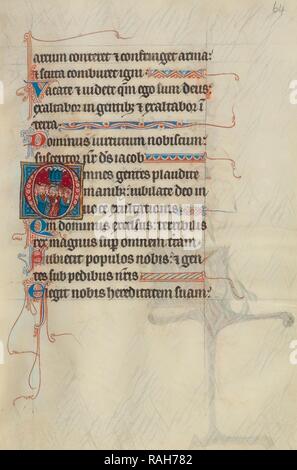 64
arcum conteret ⁊ confringet arma:
⁊ scuta comburet igni
Vacate ⁊ videte qm ego sum deus:
exaltabor in gentib; ⁊ exaltabor ī
terra
Dominus uirtutum nobiscum:
susceptor nr ds iacob
Omnes gentes plaudite
manib; iubilate deo in
uoce exultationis
Qm dominus excelsus: terribilis
rex magnus sup omnem tram
Subiecit populos nobis: ⁊ gen
tes sub pedibus nris
Elegit nobis hereditatem suam:
alamy
Image ID: RAH782
www.alamy.com